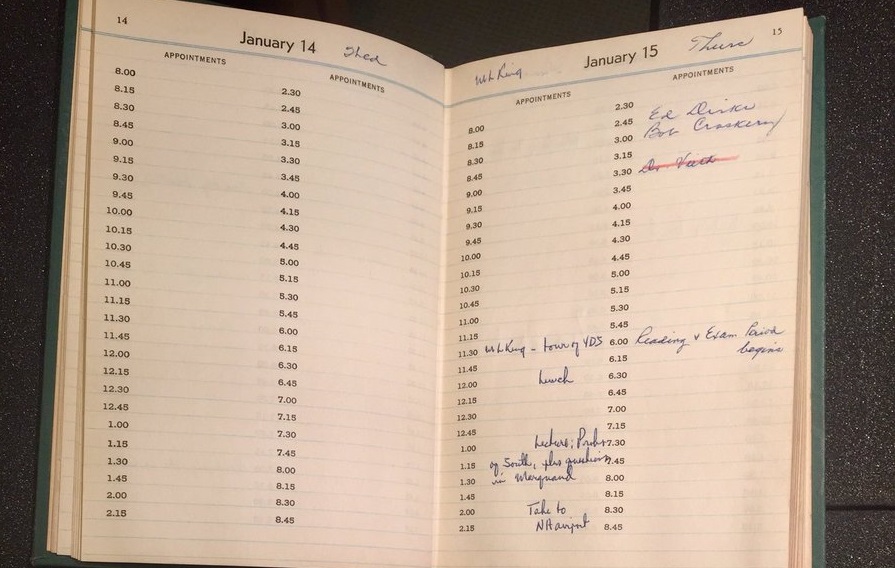 14
January 14 Wed
APPOINTMENTS
APPOINTMENTS
8.00
8.15
8.30
8.45
9.00
9.15
9.30
9.45
10.00
10.15
10.30
10.45
11.00
11.15
11.30
11.45
12.00
12.15
12.30
12.45
1.00
1.15
1.30
1.45
2.00
2.15
2.30
2.45
3.00
3.15
3.30
3.45
4.00
4.15
4.30
4.45
5.00
5.15
5.30
5.45
6.00
6.15
6.30
6.45
7.00
7.15
7.30
7.45
8.00
8.15
8.30
8.45
15
January 15 Thurs
M L King
APPOINTMENTS
APPOINTMENTS
8.00
8.15
8.30
8.45
9.00
9.15
9.30
9.45
10.00
10.15
10.30
10.45
11.00
11.15
11.30 M L King - tour of YDS
11.45
12.00 Lunch
12.15
12.30
12.45
1.00 Lecture: Probs
1.15 of South, plus questions
1.30 in Marquand
1.45
2.00 Take to
2.15 NH airport
2.30
2.45 Ed Dirks
3.00 Bob
3.15
3.30 Dr.
3.45
4.00
4.15
4.30
4.45
5.00
5.15
5.30
5.45
6.00 Reading & Exam Period
begins
6.15
6.30
6.45
7.00
7.15
7.30
7.45
8.00
8.15
8.30
8.45